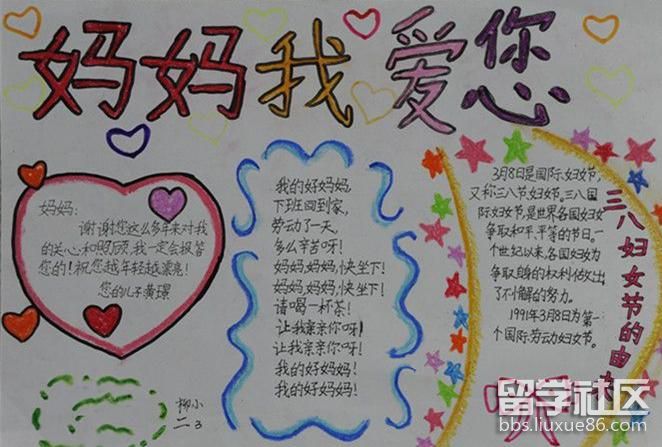 妈妈我爱您
妈妈:
谢谢您这么多年来对我
的关心和照顾,我一定会报答
您的!祝您越年轻越漂亮!
您的儿子黄璟
我的好妈妈,
下班回到家,
劳动了一天,
多么辛苦呀!
妈妈,妈妈,快坐下!
妈妈,妈妈,快坐下!
请喝一杯茶!
让我亲亲你呀!
让我亲亲你呀!
我的好妈妈!
我的好妈妈!
三八妇女节的由来
3月8日是国际妇女节,
又称三八节,妇女节。三八国
际妇女节,是世界各国妇女
争取和平、平等的节日。一
个世纪以来,各国妇女为
争取自身的权利做出
了不懈的努力。
1991年3月8日为第一
个国际劳动妇女节。
柳小
二3
留学社区
bbs.liuxue86.com